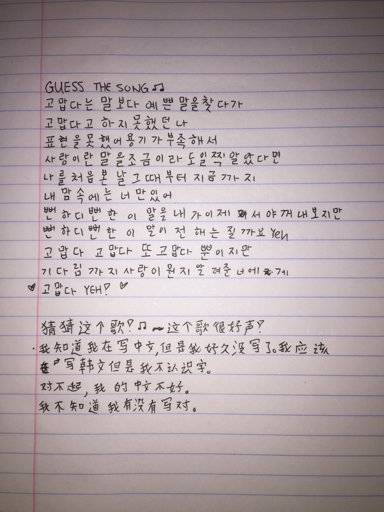 GUESS THE SONG ♫
고맙다는 말보다 예쁜 말을 찾다가
고맙다고 하지 못했던 나
표현을 못했어 용기가 부족해서
사랑이란 말을 조금이라도 일찍 알았다면
나를 처음 본 날 그때부터 지금까지
내 맘속에는 너만 있어
뻔하디 뻔한 이 말을 내가 이제 와서야 꺼내보지만
뻔하디 뻔한 이 말이 전해는 질까요 Yeh
고맙다 고맙다 또 고맙다 뿐이지만
기다림까지 사랑이 뭔지 알려준 너에게
♥ 고맙다 YEH! ♥
猜猜这个歌? ♫ ~ 这个歌很好声?
· 我知道我在写中文,但是我好久没写了。我应该
写韩文但是我不认识字。
对不起, 我的中文不好。
我不知道我有没有写对。